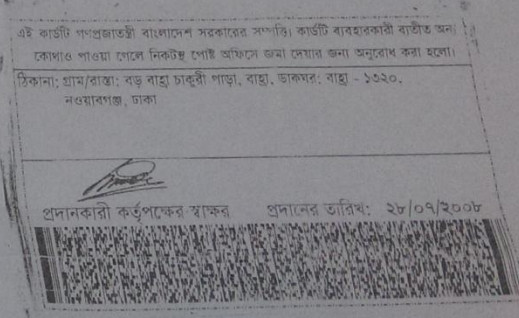 এই কার্ডটি গণপ্রজাতন্ত্রী বাংলাদেশ সরকারের সম্পত্তি। কার্ডটি ব্যবহারকারী ব্যতীত অন্য
কোথাও পাওয়া গেলে নিকটস্থ পোষ্ট অফিসে জমা দেয়ার জন্য অনুরোধ করা হলো।
ঠিকানা: গ্রাম/রাস্তা: বড় বাহ্রা চাকুরী পাড়া, বাহ্রা, ডাকঘর: বাহ্রা - ১৩২০,
নওয়াবগঞ্জ, ঢাকা
প্রদানকারী কর্তৃপক্ষের স্বাক্ষর প্রদানের তারিখ: ২৮/০৭/২০০৮